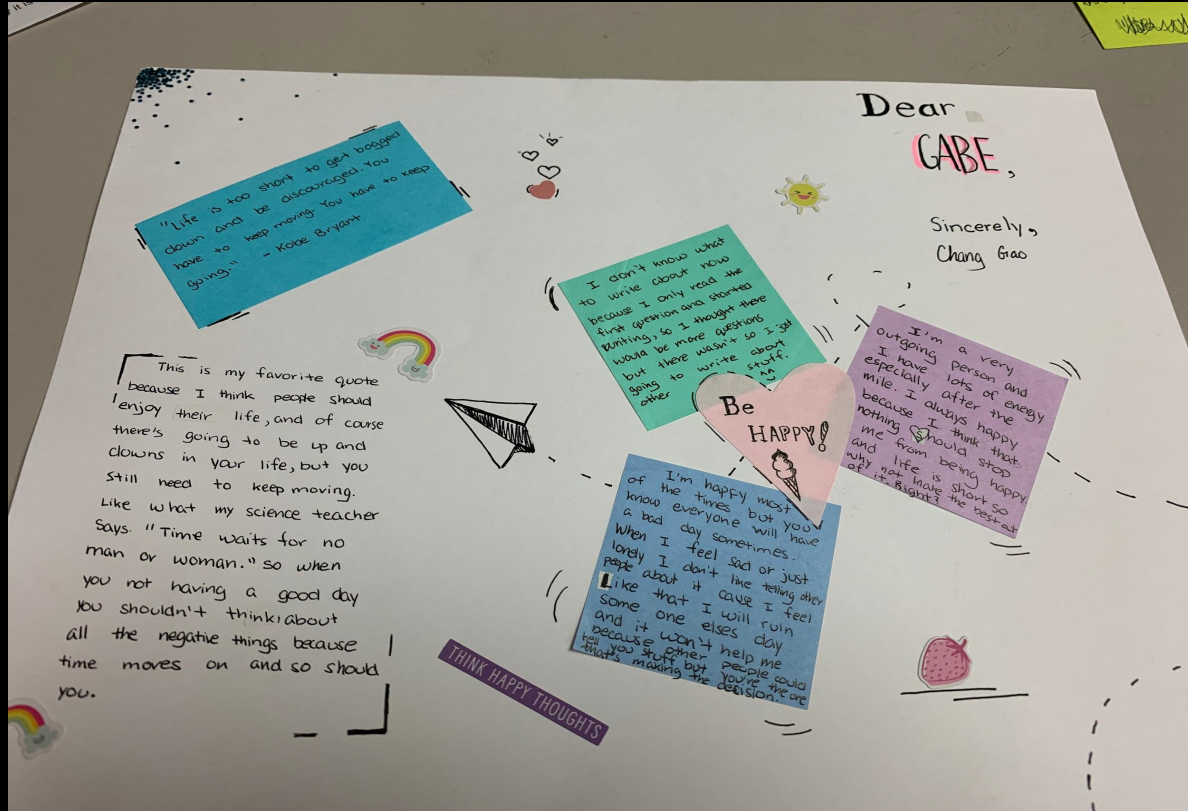 Dear
GABE,
Sincerely,
Chang Gao
"Life is too short to get bogged
down and be discouraged. You
have to keep moving. You have to keep
going." - Kobe Bryant
This is my favorite quote
because I think people should
enjoy their life, and of course
there's going to be up and
downs in your life, but you
still need to keep moving.
Like what my science teacher
says. "Time waits for no
man or woman." so when
you not having a good day
you shouldn't think about
all the negative things because
time moves on and so should
you.
I don't know what
to write about now
because I only read the
first question and started
writing, so I thought there
would be more questions
but there wasn't so I just
going to write about
other stuff.
Be
HAPPY!
I'm a very
outgoing person and
I have lots of energy
especially after the
mile. I always happy
because I think that
nothing should stop
me from being happy
and life is short so
why not make the best out
of it. Right?
I'm happy most
of the times but you
know everyone will have
a bad day sometimes.
When I feel sad or just
lonely I don't like telling other
people about it cause I feel
Like that I will ruin
some one elses day
and it won't help me
because other people could
tell you stuff but you're the one
that's making the decision.
THINK HAPPY THOUGHTS